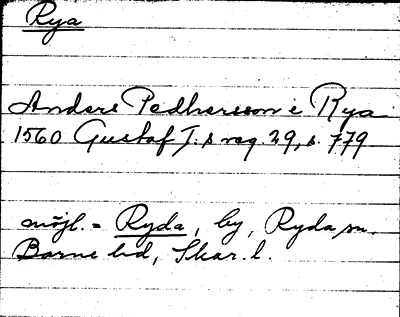 Rya
Anders Pedhersson i Rya
1560 Gustaf I:s reg. 29, s. 779
möjl. = Ryda, by, Ryda sn.
Barne hd, Skar. l.